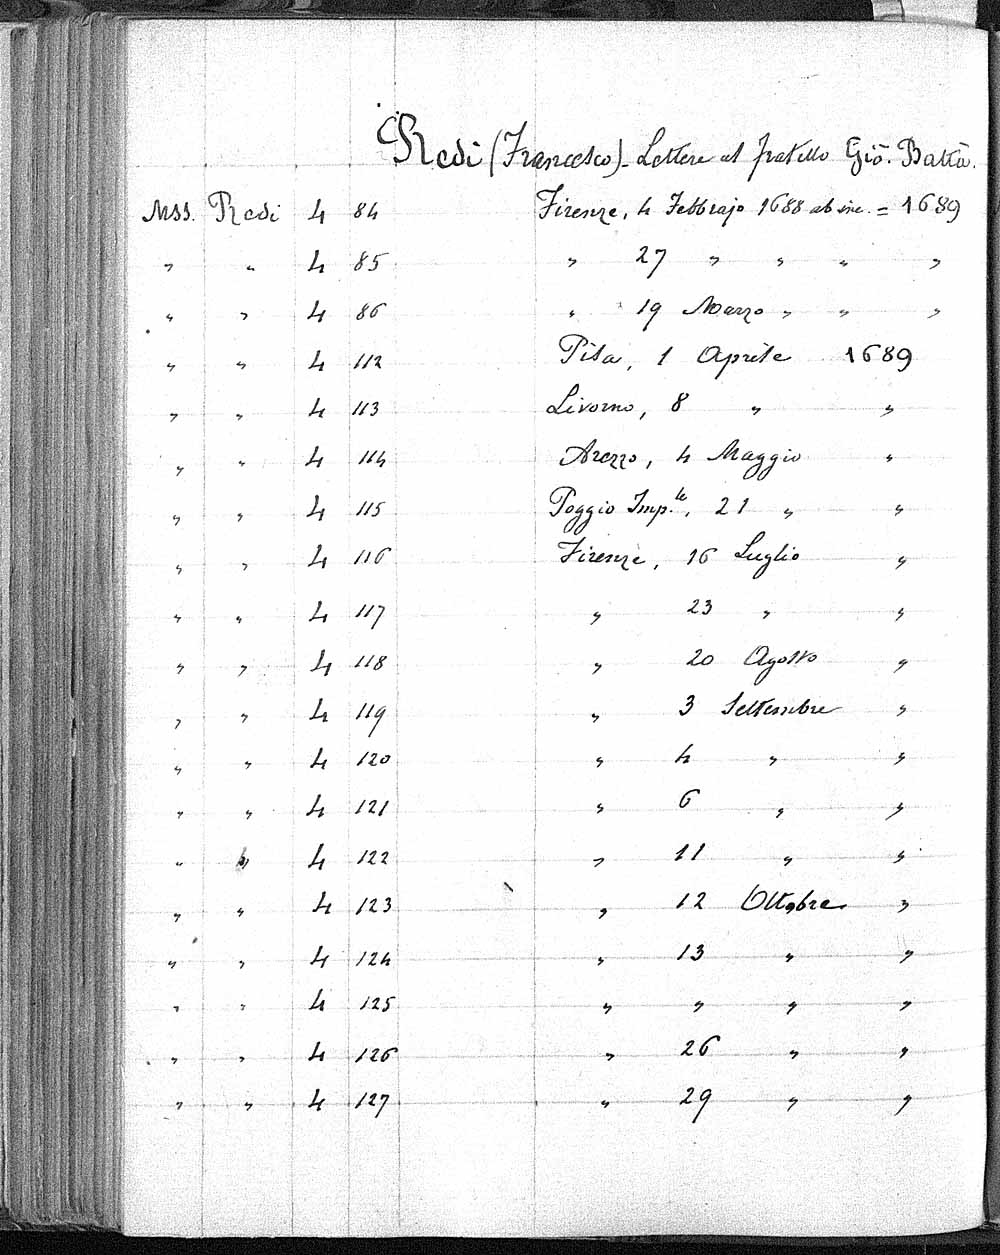 Redi (Francesco) - Lettere al fratello Giō. Battā.
Mss. Redi 4 84 Firenze, 4 Febbrajo 1688 ab inc. = 1689
" " 4 85 " 27 " " " "
" " 4 86 " 19 Marzo " " "
" " 4 112 Pisa, 1 Aprile 1689
" " 4 113 Livorno, 8 " "
" " 4 114 Arezzo, 4 Maggio "
" " 4 115 Poggio Imp.le, 21 " "
" " 4 116 Firenze, 16 Luglio "
" " 4 117 " 23 " "
" " 4 118 " 20 Agosto "
" " 4 119 " 3 Settembre "
" " 4 120 " 4 " "
" " 4 121 " 6 " "
" " 4 122 " 11 " "
" " 4 123 " 12 Ottobre "
" " 4 124 " 13 " "
" " 4 125 " " " "
" " 4 126 " 26 " "
" " 4 127 " 29 " "